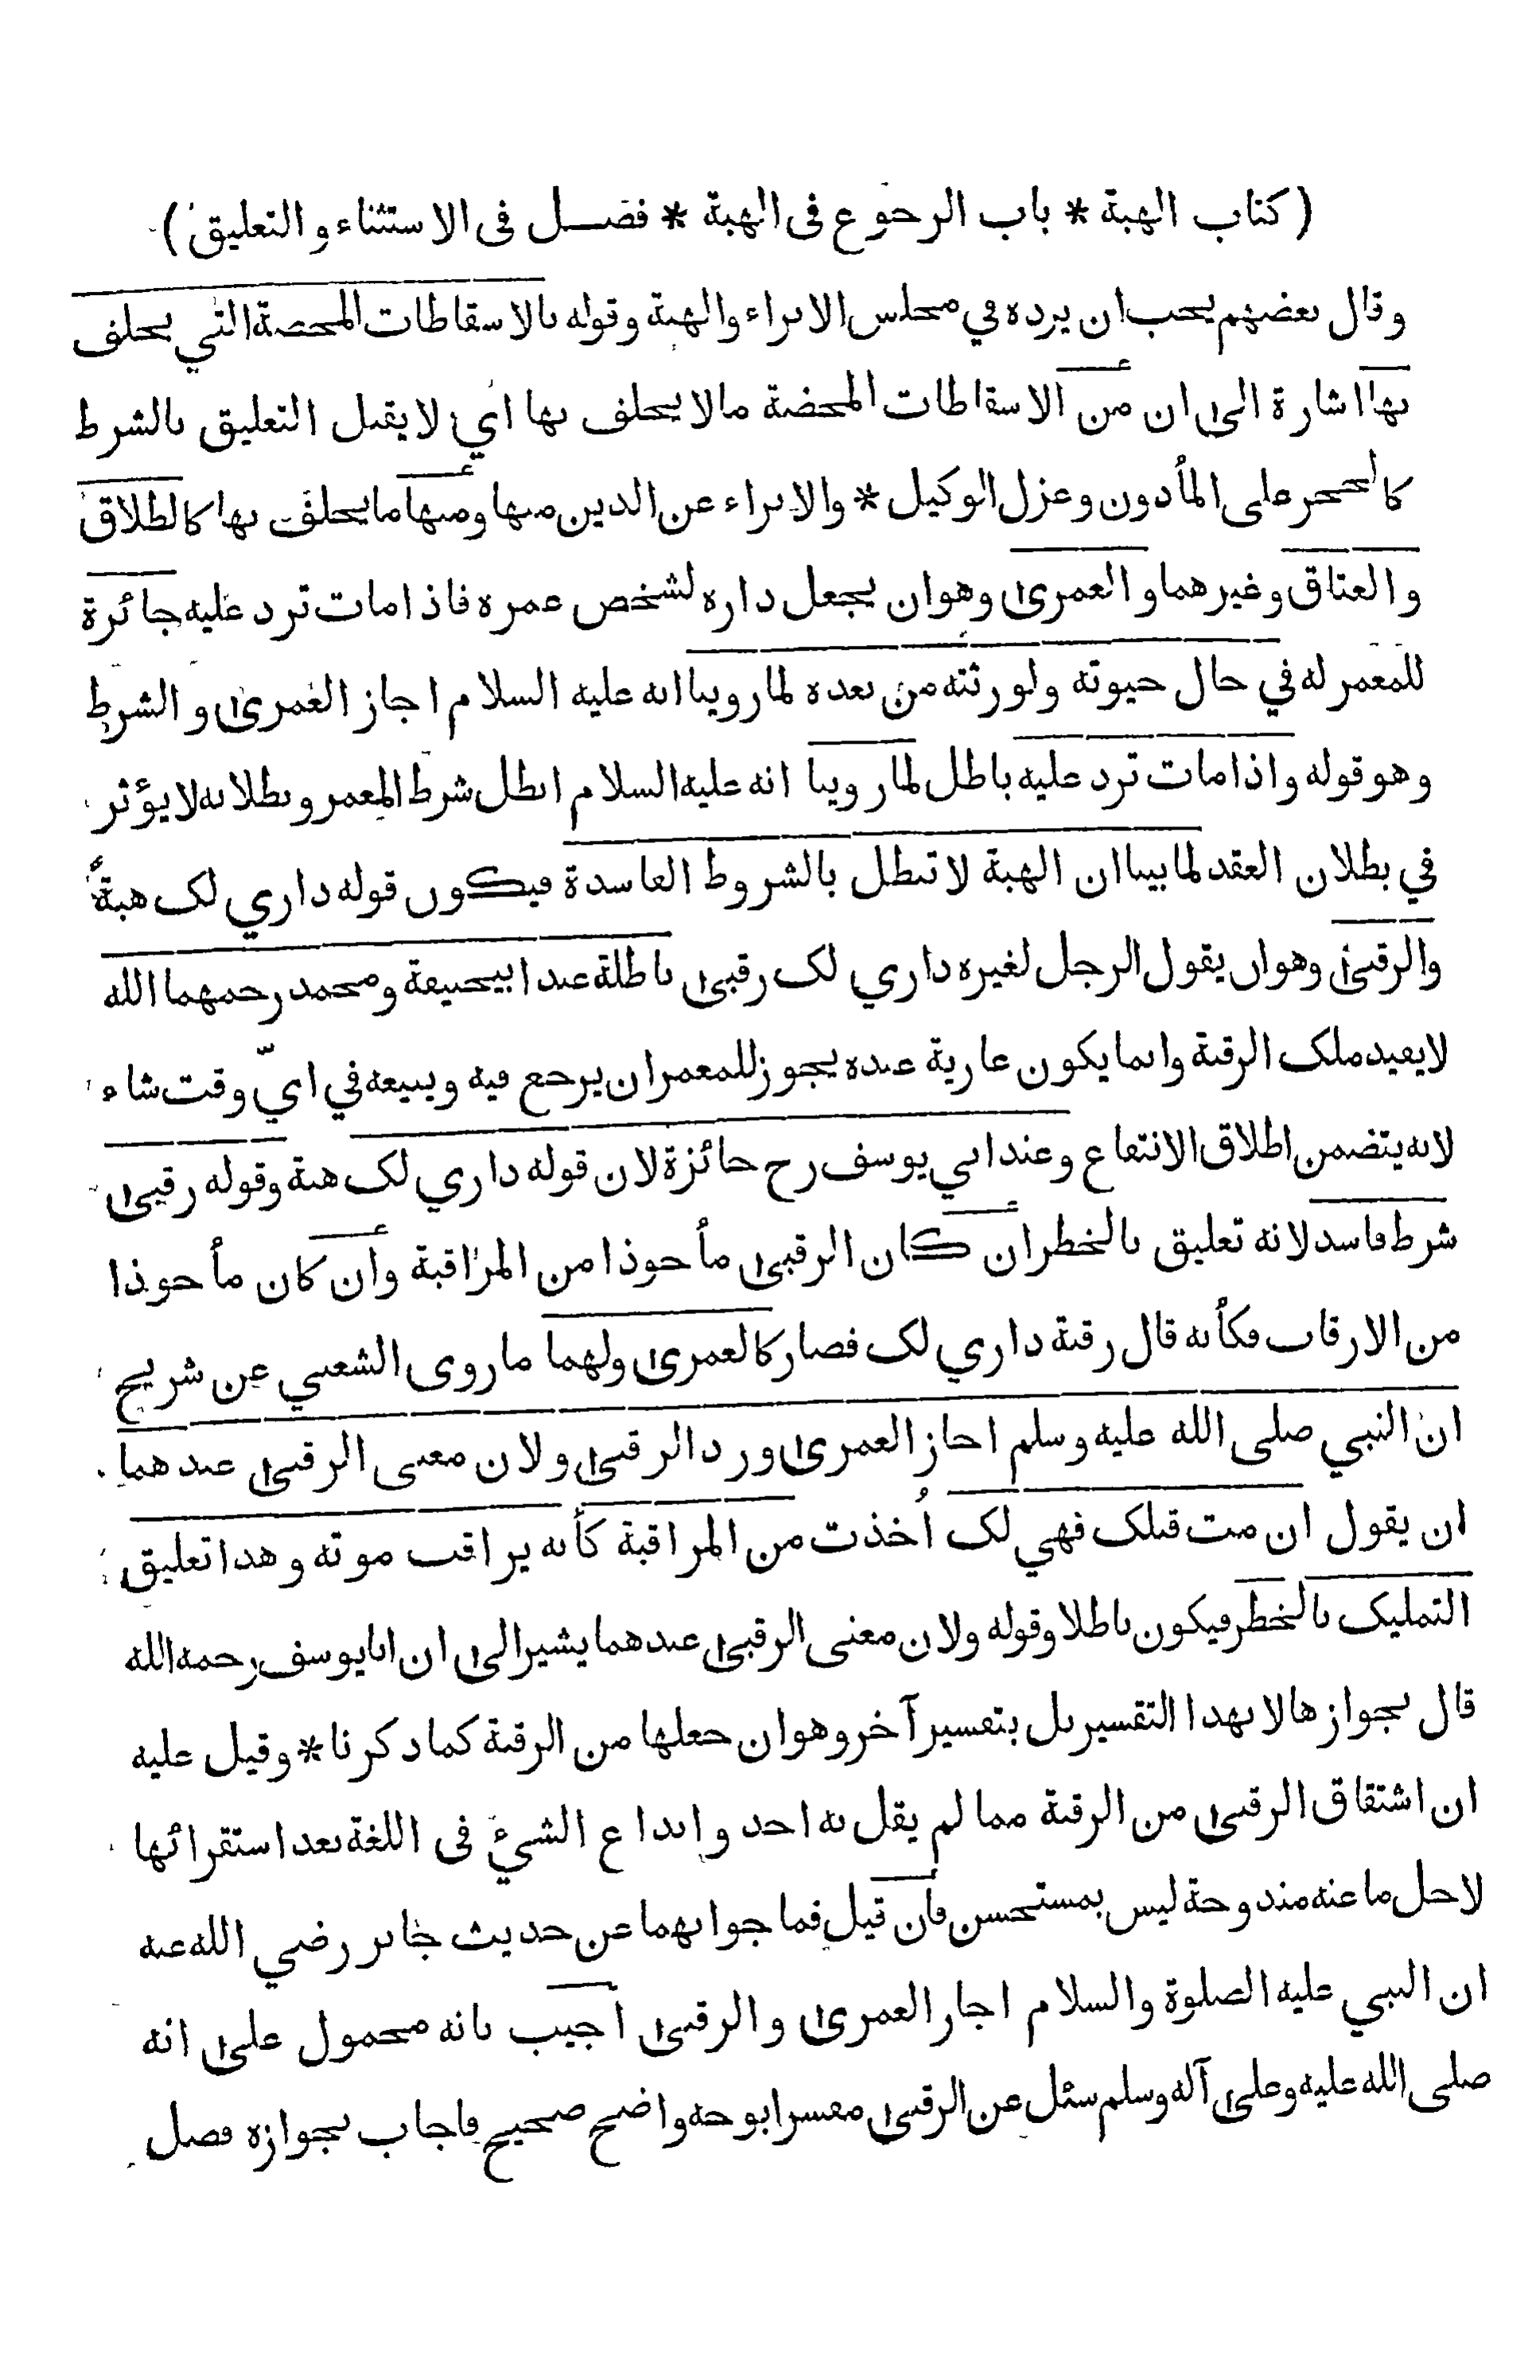 ( كتاب الهبة * باب الرجوع فى الهبة * فصل فى الاستثناء والتعليق )
وقال بعضهم يجب ان يرده في مجلس الابراء والهبة وقوله بالاسقاطات المحضة التي يحلف
بها اشارة الى ان من الاسقاطات المحضة مالا يحلف بها اي لا يقبل التعليق بالشرط
كالحجر على المأذون وعزل الوكيل * والابراء عن الدين منها ومنها ما يحلف بها كالطلاق
والعتاق وغيرهما والعمرى وهو ان يجعل داره لشخص عمره فاذا مات ترد عليه جائزة
للمعمر له في حال حيوته ولورثته من بعده لما روينا انه عليه السلام اجاز العمرى والشرط
وهو قوله واذا مات ترد عليه باطل لما روينا انه عليه السلام ابطل شرط المعمر وبطلانه لا يؤثر
في بطلان العقد لما بينا ان الهبة لا تبطل بالشروط الفاسدة فيكون قوله داري لك هبةً
والرقبى وهو ان يقول الرجل لغيره داري لك رقبى باطلة عند ابيحنيفة ومحمد رحمهما الله
لا يفيد ملك الرقبة وانما يكون عارية عنده يجوز للمعمر ان يرجع فيه ويبيعه في ايّ وقت شاء
لانه يتضمن اطلاق الانتفاع وعند ابي يوسف رح جائزة لان قوله داري لك هبة وقوله رقبى
شرط فاسد لانه تعليق بالخطر ان كان الرقبى مأخوذا من المراقبة وان كان مأخوذا
من الارقاب فكأنه قال رقبة داري لك فصار كالعمرى ولهما ما روى الشعبي عن شريح
ان النبي صلى الله عليه وسلم اجاز العمرى ورد الرقبى ولان معنى الرقبى عندهما
ان يقول ان مت قبلك فهي لك اُخذت من المراقبة كأنه يراقب موته وهذا تعليق
التمليك بالخطر فيكون باطلا وقوله ولان معنى الرقبى عندهما يشير الى ان ابا يوسف رحمه الله
قال بجوازها لا بهذا التفسير بل بتفسير آخر وهو ان جعلها من الرقبة كما ذكرنا * وقيل عليه
ان اشتقاق الرقبى من الرقبة مما لم يقل به احد وابداع الشيء فى اللغة بعد استقرائها
لاجل ما عنه مندوحة ليس بمستحسن فان قيل فما جوابهما عن حديث جابر رضي الله عنه
ان النبي عليه الصلوة والسلام اجاز العمرى والرقبى اجيب بانه محمول على انه
صلى الله عليه وعلى آله وسلم سئل عن الرقبى مفسرا بوجه واضح صحيح فاجاب بجوازه فصل